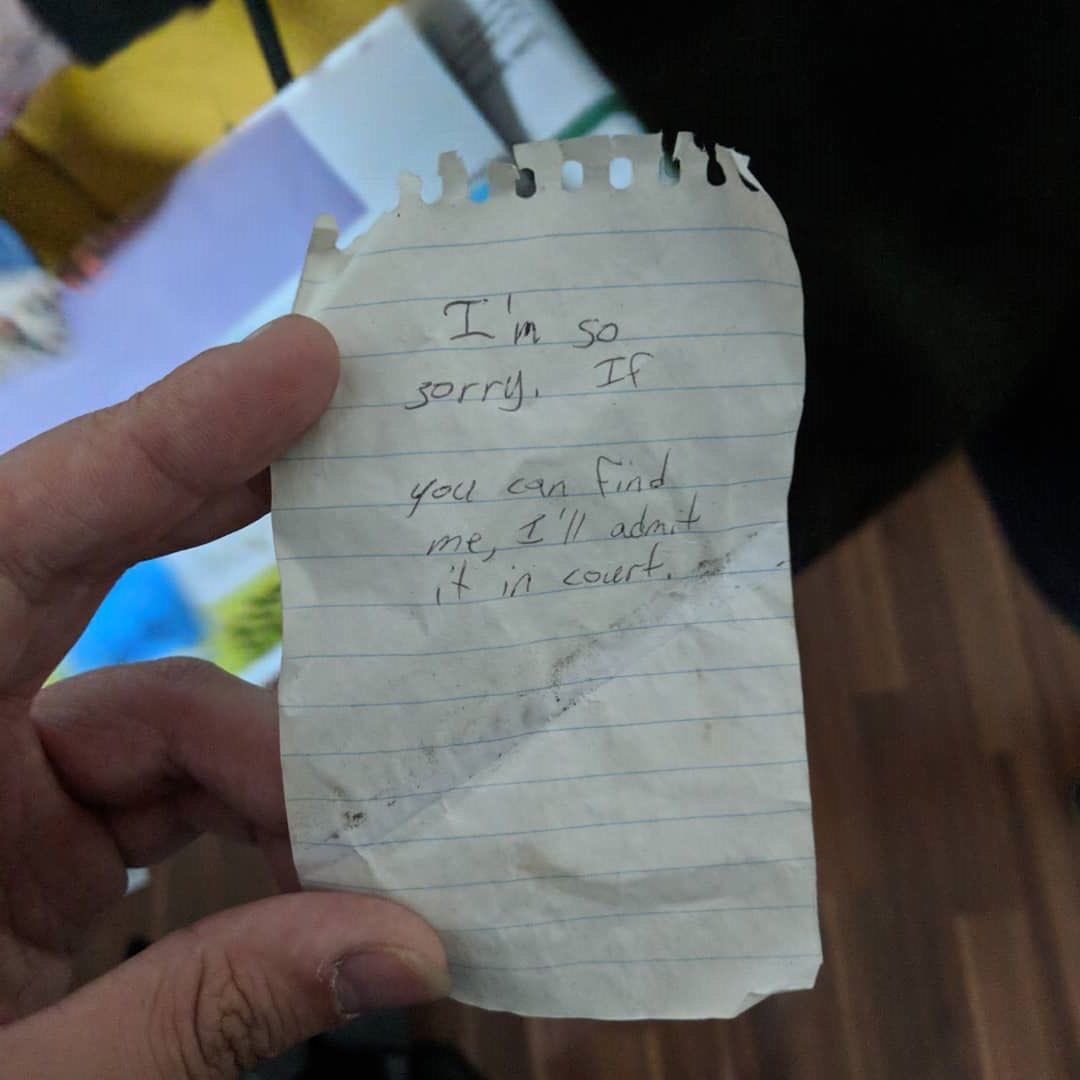 I'm so
sorry. If
you can find
me, I'll admit
it in court.